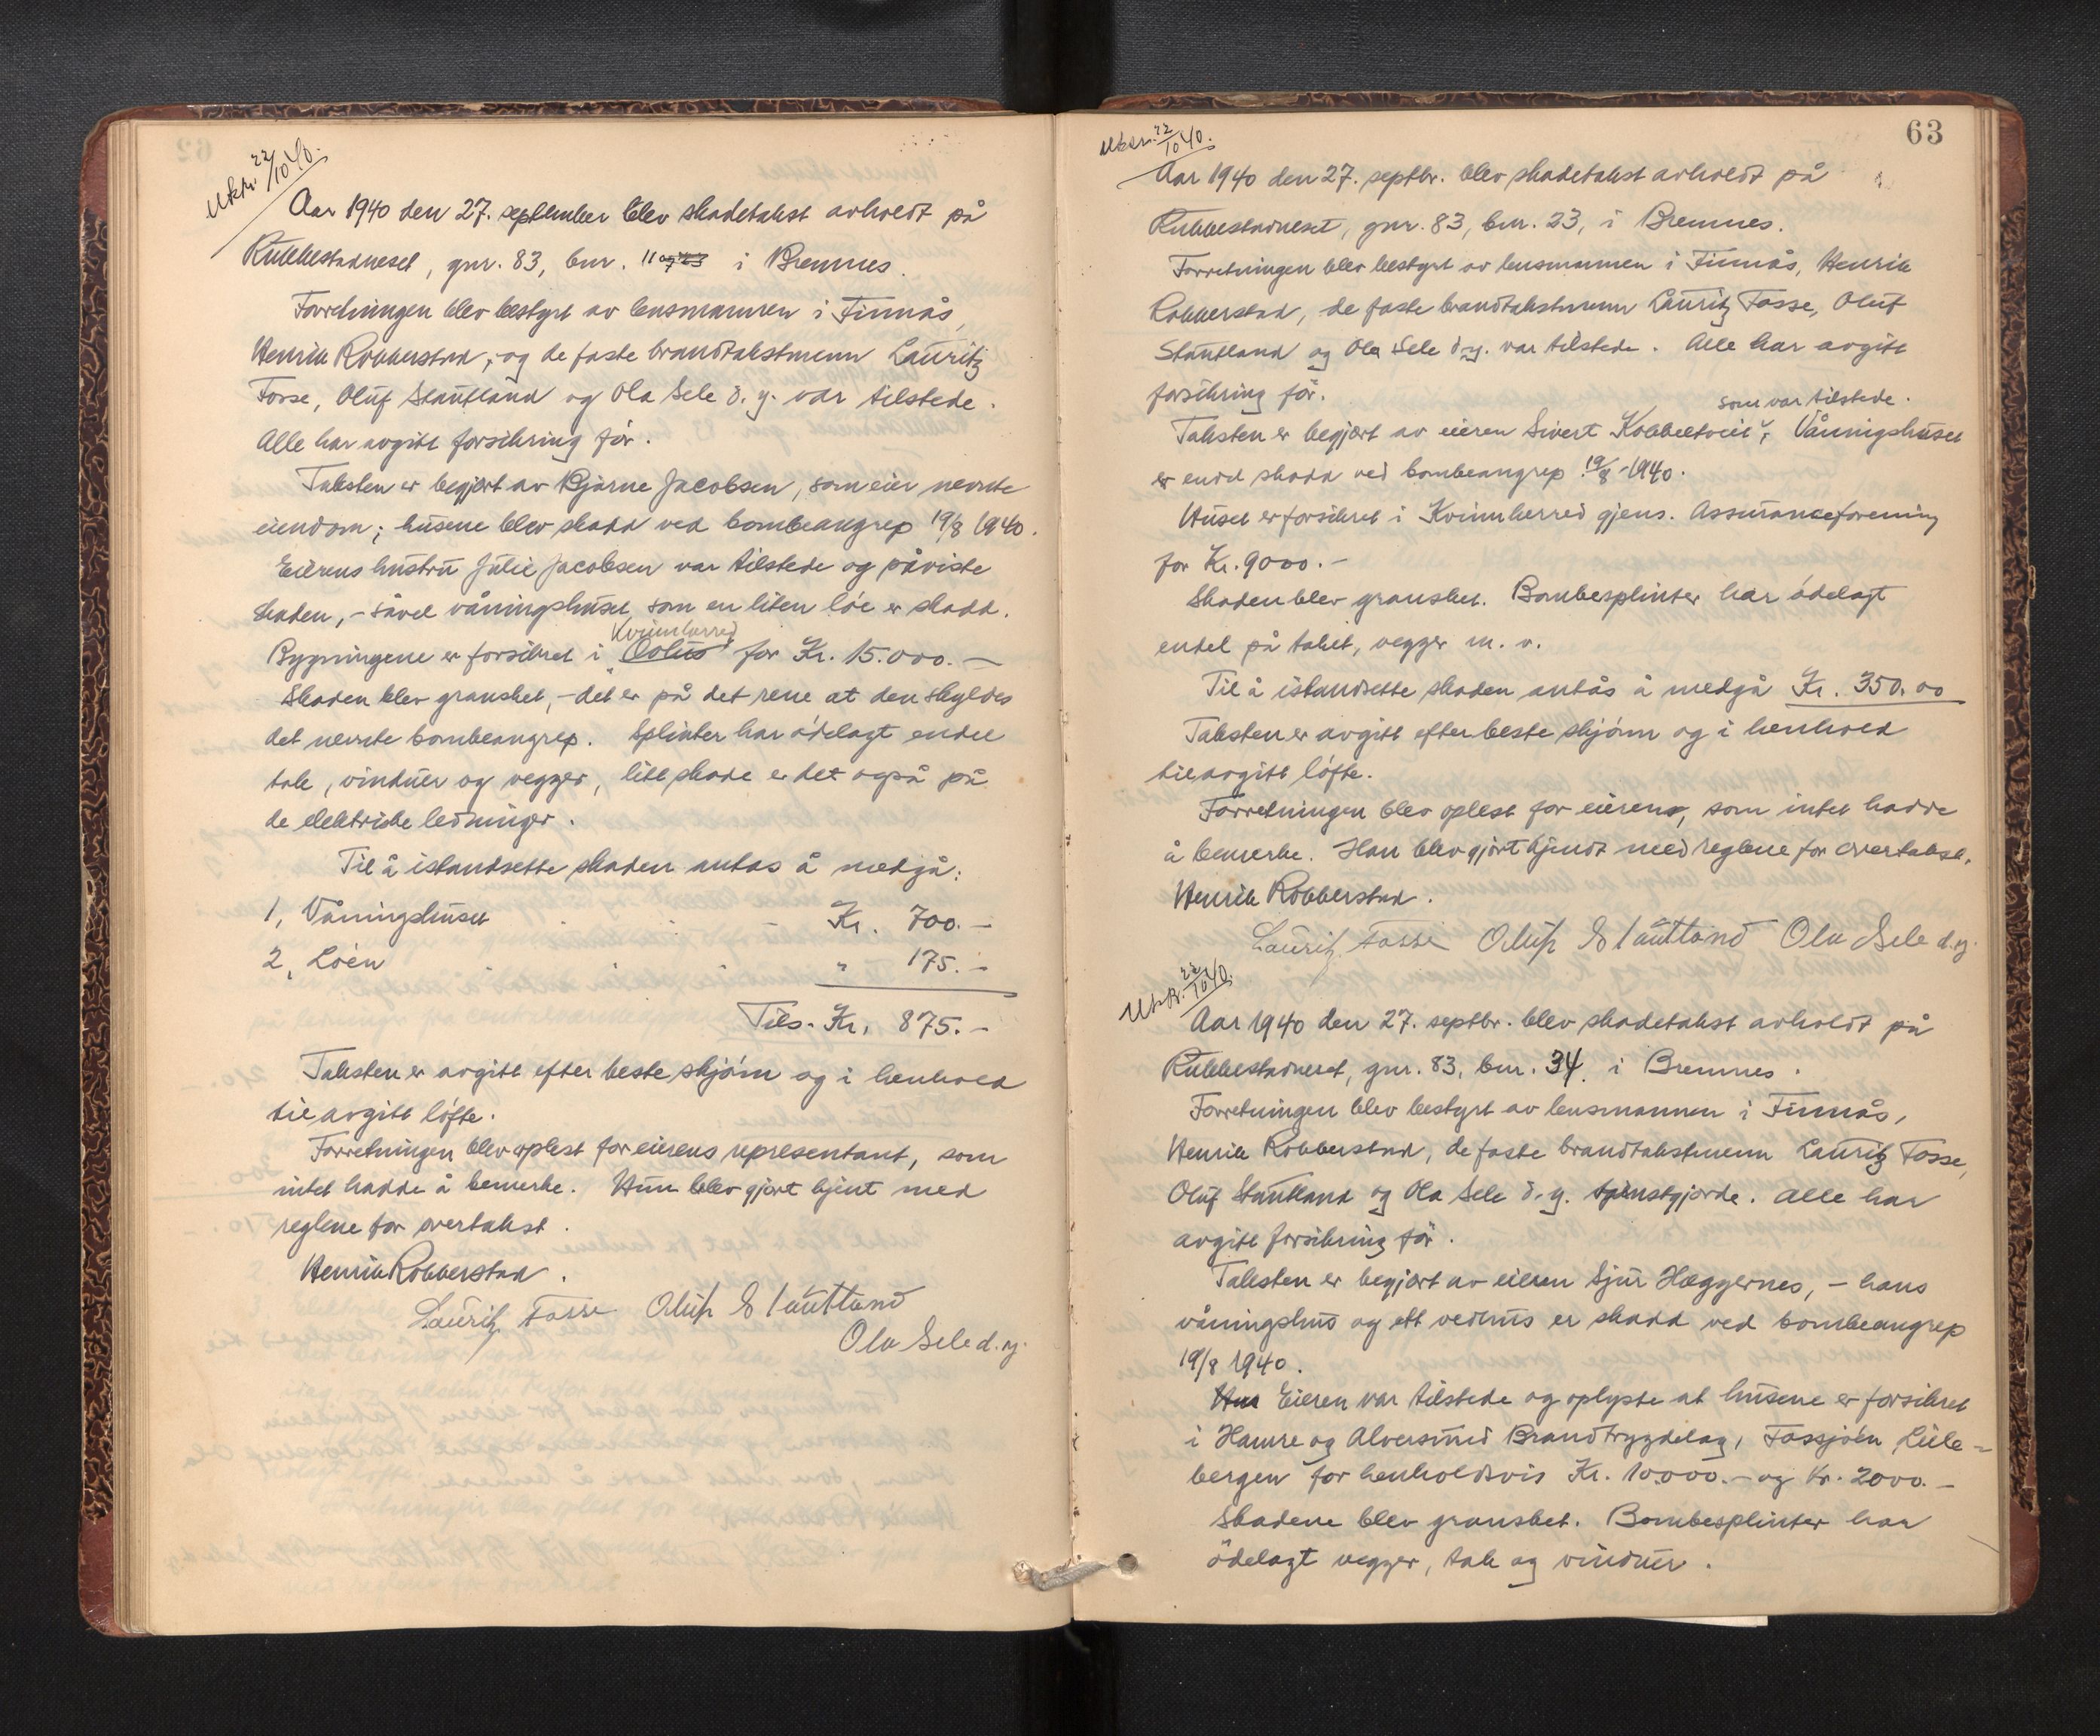 Utskr. 22/10 40.
Aar 1940 den 27. september blev skadetakst avholdt på
Rubbestadneset, gnr. 83, bnr. 11 og 23 i Bremnes.
Forretningen blev bestyrt av lensmannen i Finnås,
Henrik Robberstad, og de faste brandtakstmenn Lauritz
Fosse, Oluf Stautland og Ola Sele d. y. var tilstede.
Alle har avgitt forsikring før.
Taksten er begjært av Bjarne Jacobsen, som eier nevnte
eiendom; husene blev skadd ved bombeangrep 19/8 1940.
Eierens hustru Julie Jacobsen var tilstede og påviste
skaden, - såvel våningshuset som en liten løe er skadd.
Kvinnherred
Bygningene er forsikret i "Eolus" for Kr. 15.000. -
Skaden blev gransket, - det er på det rene at den skyldes
det nevnte bombeangrep. Splinter har ødelagt endel
tak, vinduer og vegger, litt skade er det også på
de elektriske ledninger.
Til å istandsette skaden antas å medgå:
1, Våningshuset - Kr. 700. -
2, Løen " 175. -
Tils. Kr. 875. -
Taksten er avgitt efter beste skjønn og i henhold
til avgitt løfte.
Forretningen blev oplest for eierens representant, som
intet hadde å bemerke. Hun blev gjort kjent med
reglene for overtakst.
Henrik Robberstad.
Lauritz Fosse Oluf Stautland
Ola Sele d. y.
63
Utskr. 22/10 40.
Aar 1940 den 27. septbr. blev skadetakst avholdt på
Rubbestadneset, gnr. 83, bnr. 23, i Bremnes.
Forretningen blev bestyrt av lensmannen i Finnås, Henrik
Robberstad, de faste brandtakstmenn Lauritz Fosse, Oluf
Stautland og Ola Sele d. y. var tilstede. Alle har avgitt
forsikring før.
som var tilstede.
Taksten er begjært av eieren Sivert Kobbeltveit, Våningshuset
er endel skadd ved bombeangrep 19/8 - 1940.
Huset er forsikret i Kvinnherred gjens. Assuranceforening
for Kr. 9000. -
Skaden blev gransket. Bombesplinter har ødelagt
endel på taket, vegger m. v.
Til å istandsette skaden antas å medgå Kr. 350.00
Taksten er avgitt efter beste skjønn og i henhold
til avgitt løfte.
Forretningen blev oplest for eieren, som intet hadde
å bemerke. Han blev gjort kjendt med reglene for overtakst.
Henrik Robberstad.
Lauritz Fosse Oluf Stautland Ola Sele d. y.
Utskr. 22/10 40.
Aar 1940 den 27. septbr. blev skadetakst avholdt på
Rubbestadneset, gnr. 83, bnr. 34. i Bremnes.
Forretningen blev bestyrt av lensmannen i Finnås,
Henrik Robberstad, de faste brandtakstmenn Lauritz Fosse,
Oluf Stautland og Ola Sele d. y. tjenstgjorde. Alle har
avgitt forsikring før.
Taksten er begjært av eieren Sjur Hæggernes, - hans
våningshus og ett vedhus er skadd ved bombeangrep
19/8 1940.
Eieren var tilstede og oplyste at husene er forsikret
i Hamre og Alversund Brandtrygdelag, Fossjøen, Lille-
bergen for henholdsvis Kr. 10000. - og Kr. 2000. -
Skadene blev gransket. Bombesplinter har
ødelagt vegger, tak og vinduer.